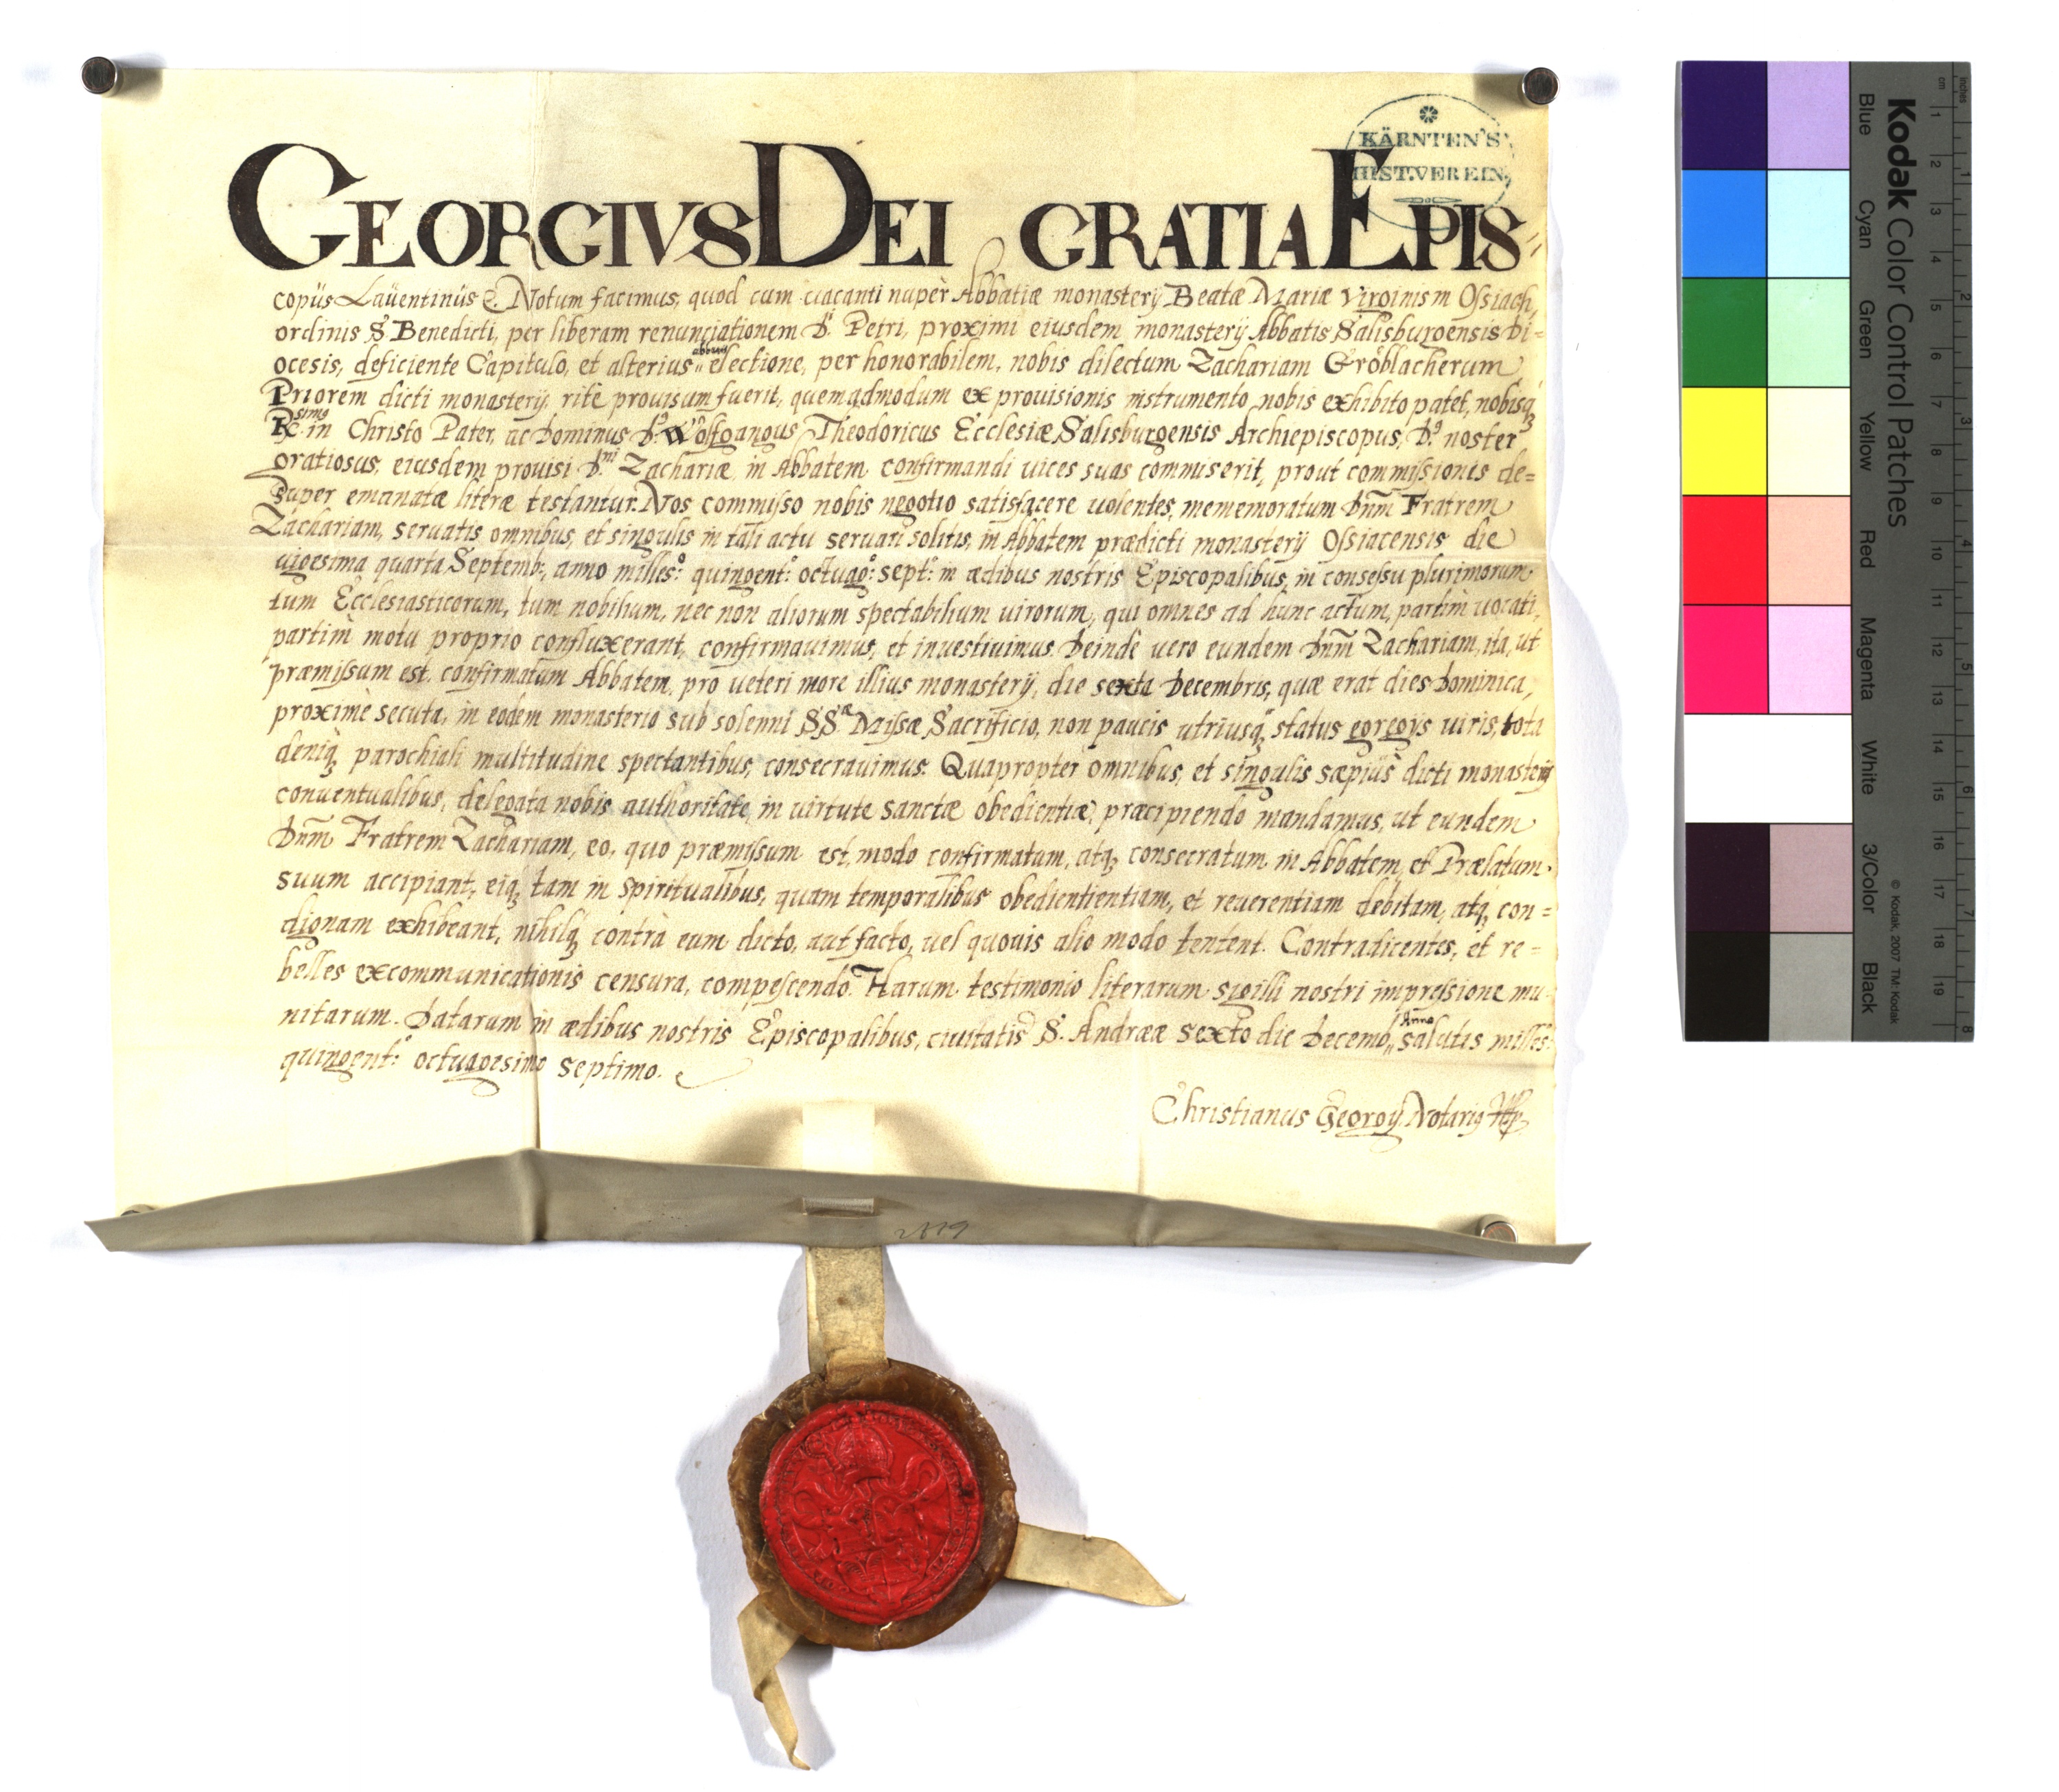 GEORGIVS DEI GRATIA EPIS=
KÄRNTEN'S
HIST. VEREIN.
copüs Laüentinüs &. Notum facimus, quod cum uacanti nupèr Abbatiæ monasterÿ Beatæ Mariæ Virginis in Ossiach,
ordinis S. Benedicti, per liberam renunciationem D. Petri, proximi eiusdem monasterÿ Abbatis Salisburgensis Di=
ocesis, deficiente Capitulo, et alterius electione, per honorabilem, nobis dilectum Zachariam Gröblacherum
Priorem dicti monasterÿ, ritè prouisum fuerit, quemadmodum ex prouisionis instrumento nobis exhibito patet, nobisqꝫ
R.simo in Christo Pater, ac Dominus D. Wolfgangus Theodoricus Ecclesiæ Salisburgensis Archiepiscopus, D. noster
gratiosus, eiusdem prouisi D.ni Zachariæ in Abbatem confirmandi uices suas commiserit, prout commissionis de=
super emanatæ literæ testantur. Nos commisso nobis negotio satisfacere uolentes, mememoratum Dnm̄ Fratrem
Zachariam, seruatis omnibus, et singulis in tali actu seruari solitis, in Abbatem prædicti monasterÿ Ossiacensis die
uigesima quarta Septemb:, anno milles:º quingent:º octuag:º sept:º in ædibus nostris Episcopalibus, in consessu plurimorum
tum Ecclesiasticorum, tum nobilium, nec non aliorum spectabilium uirorum, qui omnes ad hunc actum, partim uocati,
partim motu proprio confluxerant, confirmauimus, et inuestiuimus. Deindè uero eundem Dnm̄ Zachariam, ita, ut
præmissum est, confirmatum Abbatem, pro ueteri more illius monasterÿ, die sexta Decembris, quæ erat dies Dominica,
proximè secuta, in eodem monasterio sub solenni SS.æ Missæ Sacrificio, non paucis utriusqꝫ status egregÿs uiris, tota
deniqꝫ parochiali multitudine spectantibus, consecrauimus. Quapropter omnibus, et singulis sæpiùs dicti monasterÿ
conuentualibus, delegata nobis authoritate, in uirtute sanctæ obedientiæ, præcipiendo mandamus, ut eundem
Dnm̄ Fratrem Zachariam, eo, quo præmissum est, modo confirmatum, atqꝫ consecratum in Abbatem, et Prælatum
suum accipiant, eiqꝫ tam in spiritualibus, quam temporalibus obedientientiam, et reuerentiam debitam, atqꝫ con=
dignam exhibeant, nihilqꝫ contrà eum dicto, aut facto, uel quouis alio modo tentent. Contradicentes, et re=
belles excommunicationis censura, compescendo. Harum testimonio literarum sigilli nostri impressione mu
nitarum. Datarum in ædibus nostris Episcopalibus, ciuitatis S. Andreæ sexto die Decemb, Anno salutis milles:º
quingent:º octuagesimo septimo.
Christianus Georgÿ Notariꝰ